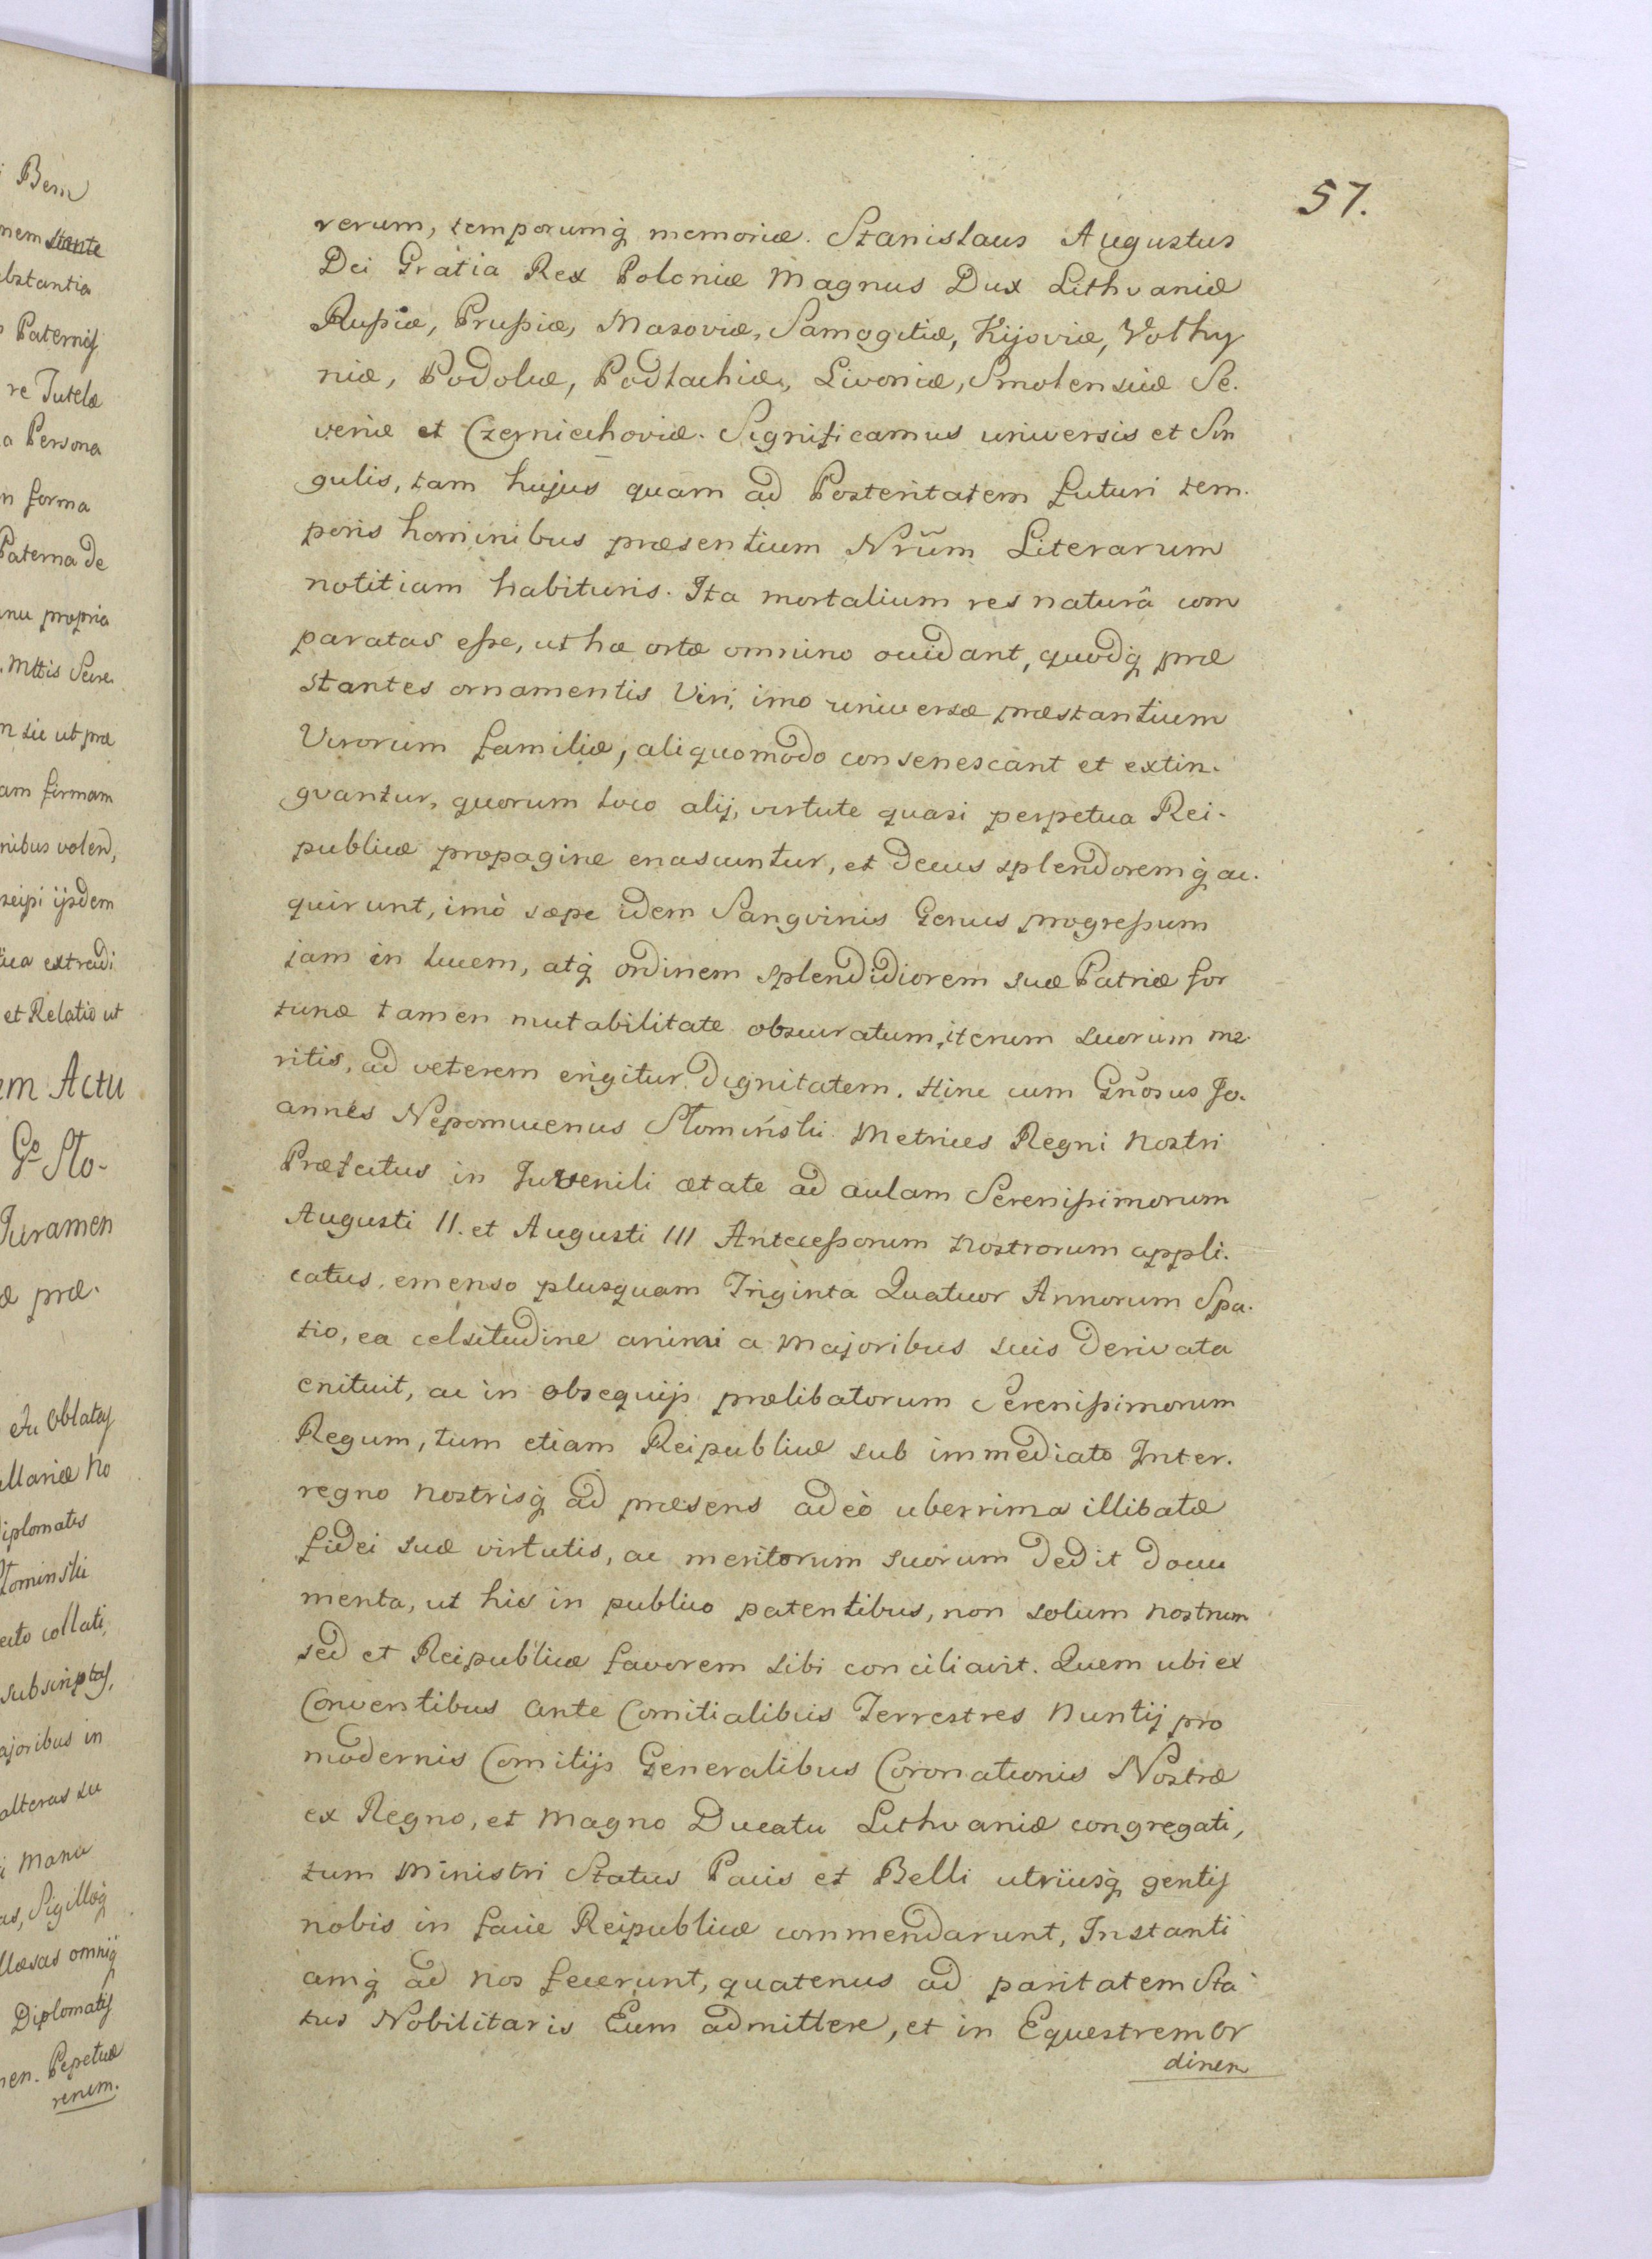 i Bem
nem stante
bstantia
Paternis
re Tutelæ
a Persona
n forma
Paterna de
nu propria
Mttis Secre
n sic ut præ
am firmam
nibus volend,
seipi ijsdem
extradi
et Relatio ut
m Actu
Gō Sło-
Juramen
æ præ.
Oblatas
llariæ No
iplomatis
łominski
collati,
subscriptas,
ajoribus in
alteras su
i Manu
as, Sigilloq̃
llæsas omniq̃
Diplomatis
en. Pepetuæ
rerum.
57.
rerum, temporumq̃ memoriæ. Stanislaus Augustus
Dei Gratia Rex Poloniæ Magnus Dux Lithvaniæ
Rußiæ, Prußiæ, Masoviæ, Samogitiæ, Kijoviæ, Volhy
niæ, Podoliæ, Podlachiæ, Livoniæ, Smolensciæ Se.
veriæ et Czerniechoviæ. Significamus universis et Sin
gulis, tam hujus quam ad Posteritatem futuri tem.
poris hominibus præsentium Nr̃um Literarum
notitiam habituris. Ita mortalium res naturâ com
paratas eße, ut hæ ortæ omnino occidant, quodq̃ præ
stantes ornamentis Viri, imo universæ præstantium
Virorum familiæ, aliquomodo consenescant et extin.
gvantur, quorum loco alij, virtute quasi perpetua Rei.
publicæ propagine enascuntur, et decus splendoremq̃ ac.
quirunt, imò sæpe idem Sangvinis Genus progreßum
jam in lucem, atq̃ ordinem splendidiorem suæ Patriæ for
tunæ tamen mutabilitate obscuratum, iterum suorum me.
ritis, ad veterem erigitur dignitatem. Hinc cum Gnõsus Jo.
annes Nepomucenus Słominśki Metrices Regni Nostri
Præfectus in Juvenili ætate ad aulam Serenißimorum
Augusti II. et Augusti III Anteceßorum Nostrorum appli.
catus, emenso plusquam Triginta Quatuor Annorum Spa.
tio, ea celsitudine animi a Majoribus suis derivata
enituit, ac in obsequijs prælibatorum Serenißimorum
Regum, tum etiam Reipublicæ sub immediato Inter.
regno Nostrisq̃ ad præsens adeò uberrima illibatæ
fidei suæ virtutis, ac meritorum suorum dedit docu
menta, ut his in publico patentibus, non solum nostrum
sed et Reipublicæ favorem sibi conciliavit. Quem ubi ex
Conventibus ante Comitialibus Terrestres Nuntij pro
modernis Comitijs Generalibus Coronationis Nostræ
ex Regno, et Magno Ducatu Lithvaniæ congregati,
tum Ministri Status Pacis et Belli utriusq̃ gentis
nobis in facie Reipublicæ commendarunt, Instanti
amq̃ ad nos fecerunt, quatenus ad paritatem Sta
tus Nobilitaris Eum admittere, et in Equestrem Or
dinem